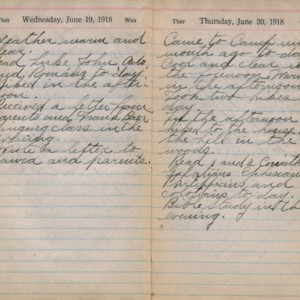 Wednesday, June 19, 1918 Wed
Weather warm and
clear.
Read Luke John Acts,
and Romans to day.
hiked in the after-
noon.
Received a letter from
parents and Frank
singing class in the
evening.
Wrote a letter to
and parents.
Ther Thursday, June 20, 1918 Ther
Came to Camp
months ago to day
Cool and clear in
the forenoon Warm
in the afternoon
Took two hikes to
day.
In the afternoon
hiked to the house
the hill in the
woods.
Read 1 and 2 Corinth
Galatians Ephesians
Philippians and
to day.
Bible Study in the
evening.